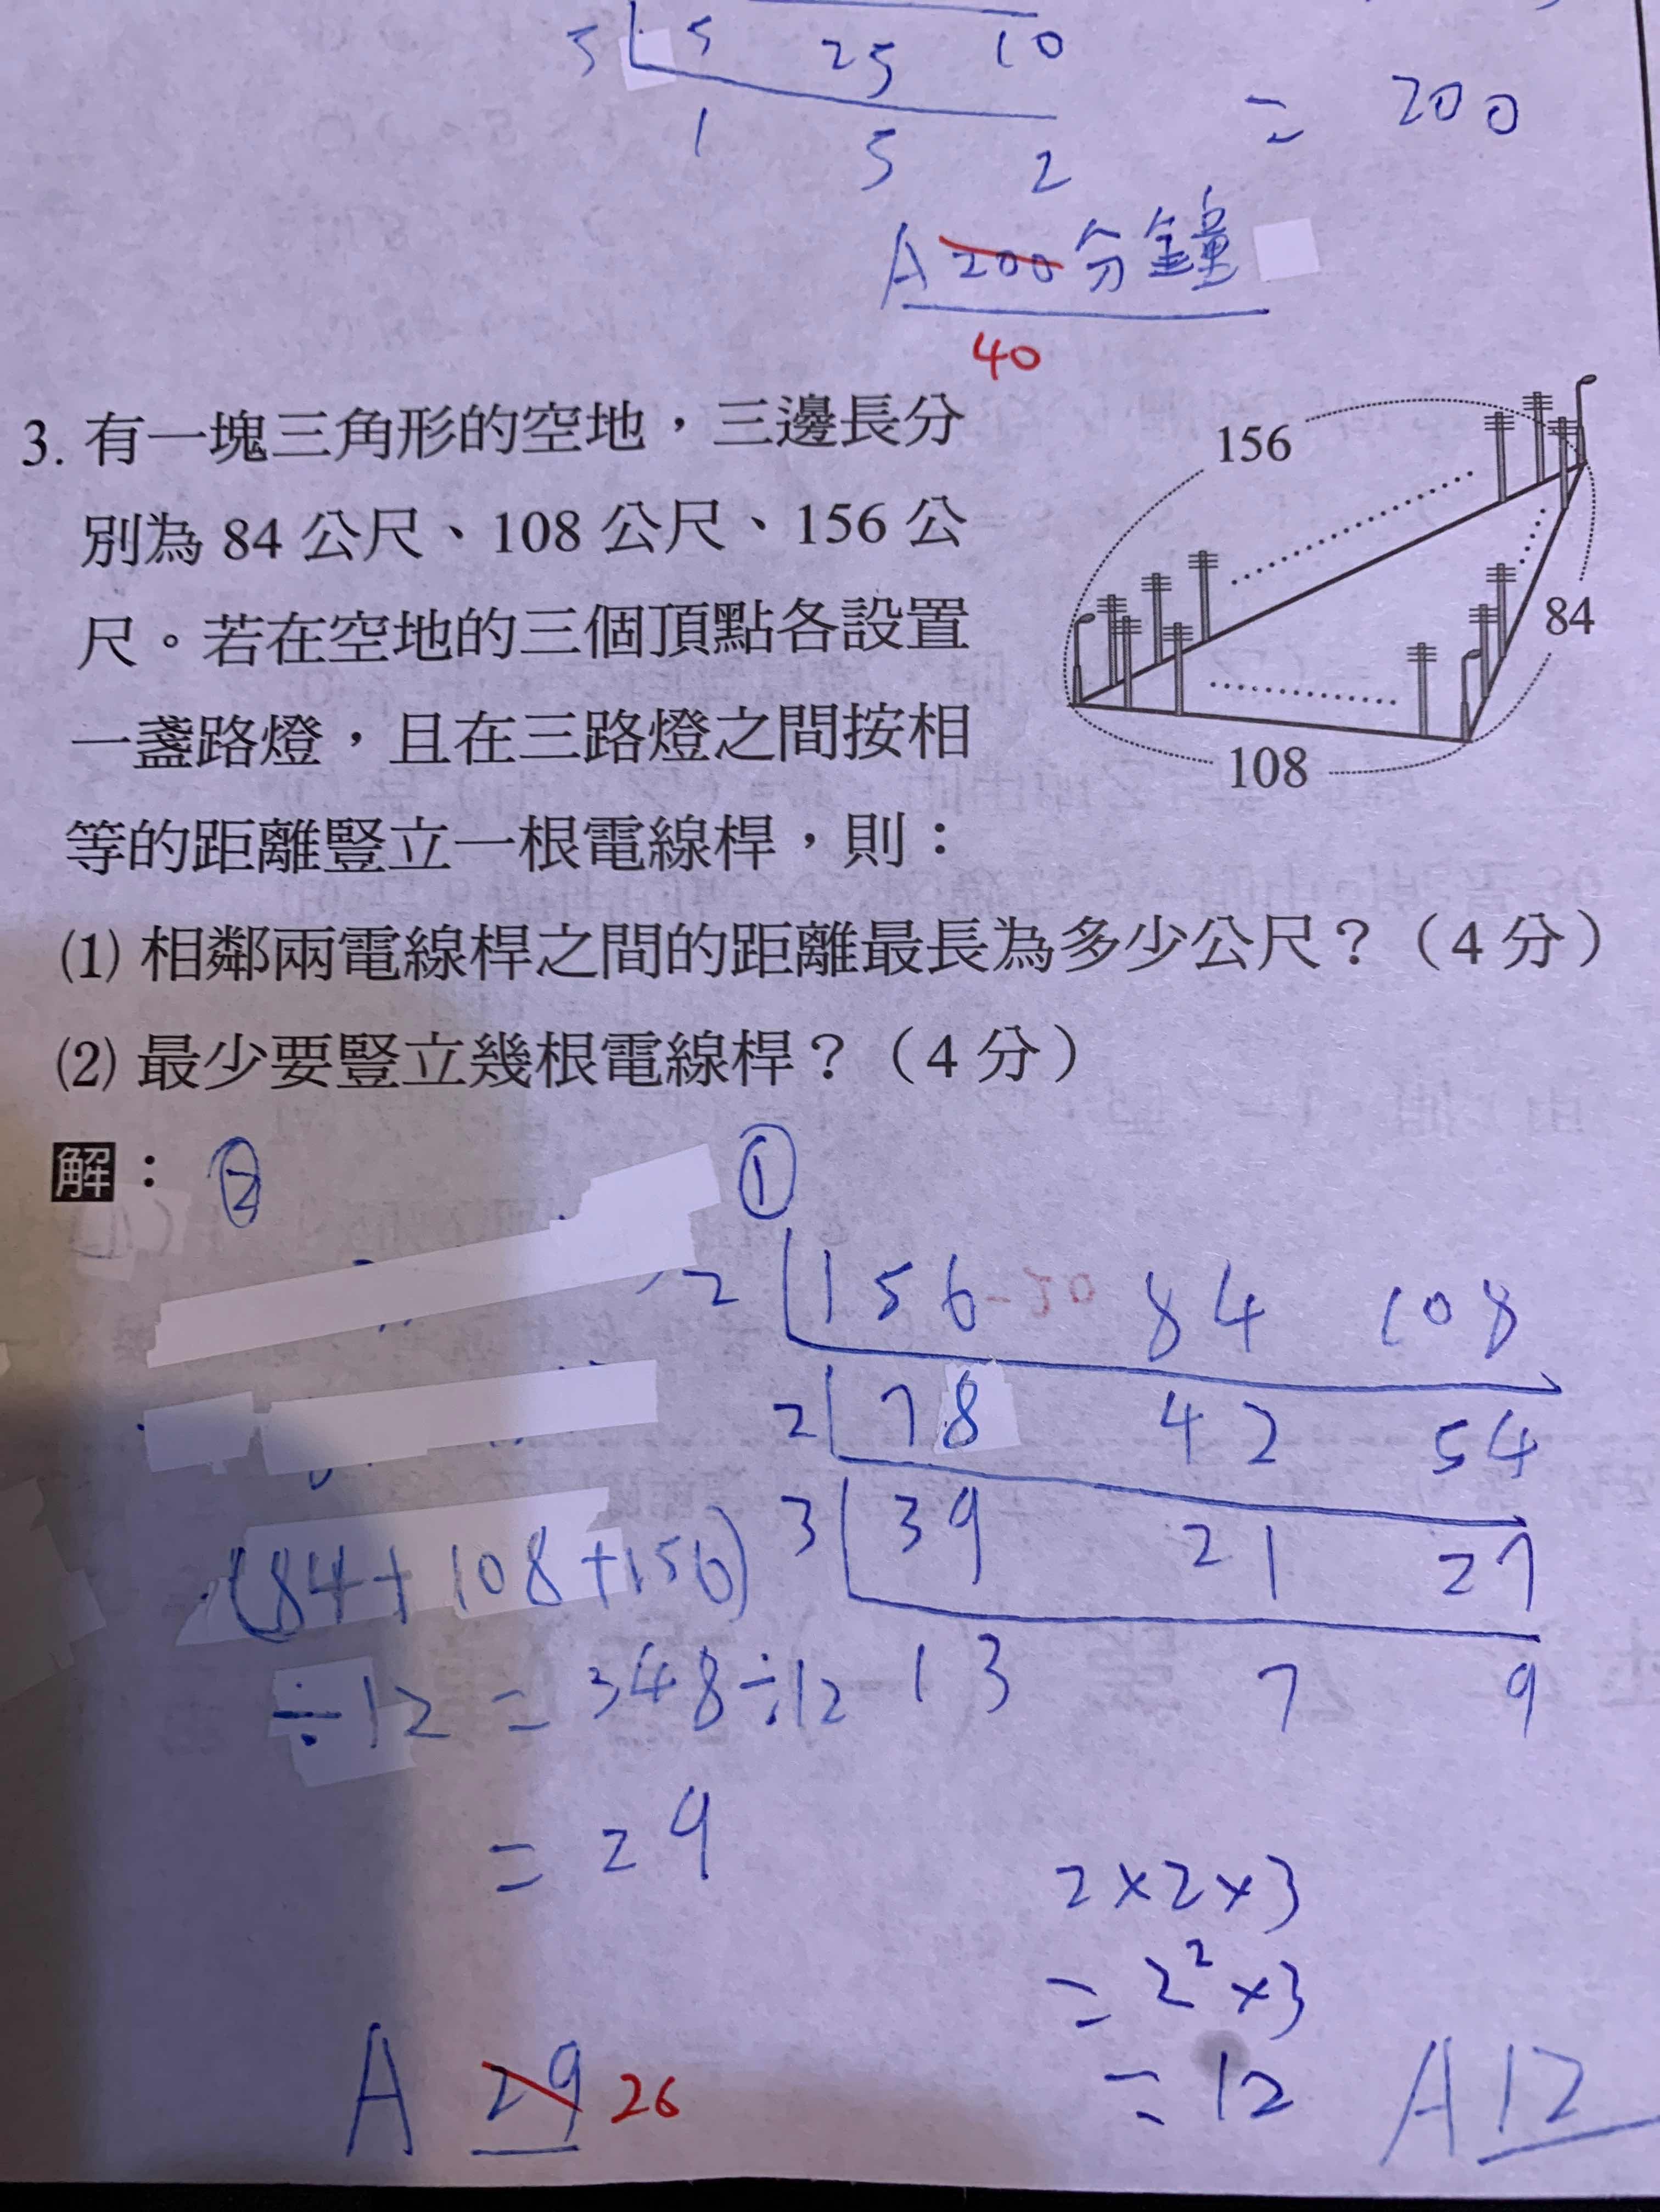 5 5 25 10
1 5 2
= 200
A 200 分鐘
40
3. 有一塊三角形的空地，三邊長分
別為 84 公尺、108 公尺、156 公
尺。若在空地的三個頂點各設置
一盞路燈，且在三路燈之間按相
等的距離豎立一根電線桿，則：
156
84
108
(1) 相鄰兩電線桿之間的距離最長為多少公尺？（4 分）
(2) 最少要豎立幾根電線桿？（4 分）
解：
②
(84+108+156)
÷12 = 348÷12
= 29
A 29 26
①
2 156 -20 84 108
2 78 42 54
3 39 21 27
13 7 9
2×2×3
= 2²×3
= 12
A 12